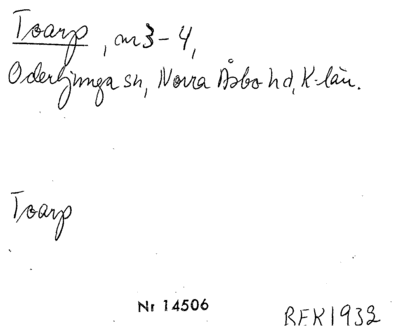 Toarp, nr 3-4,
Oderljunga sn, Norra Åsbo hd, K-län.
Toarp
Nr 14506
REK 1932